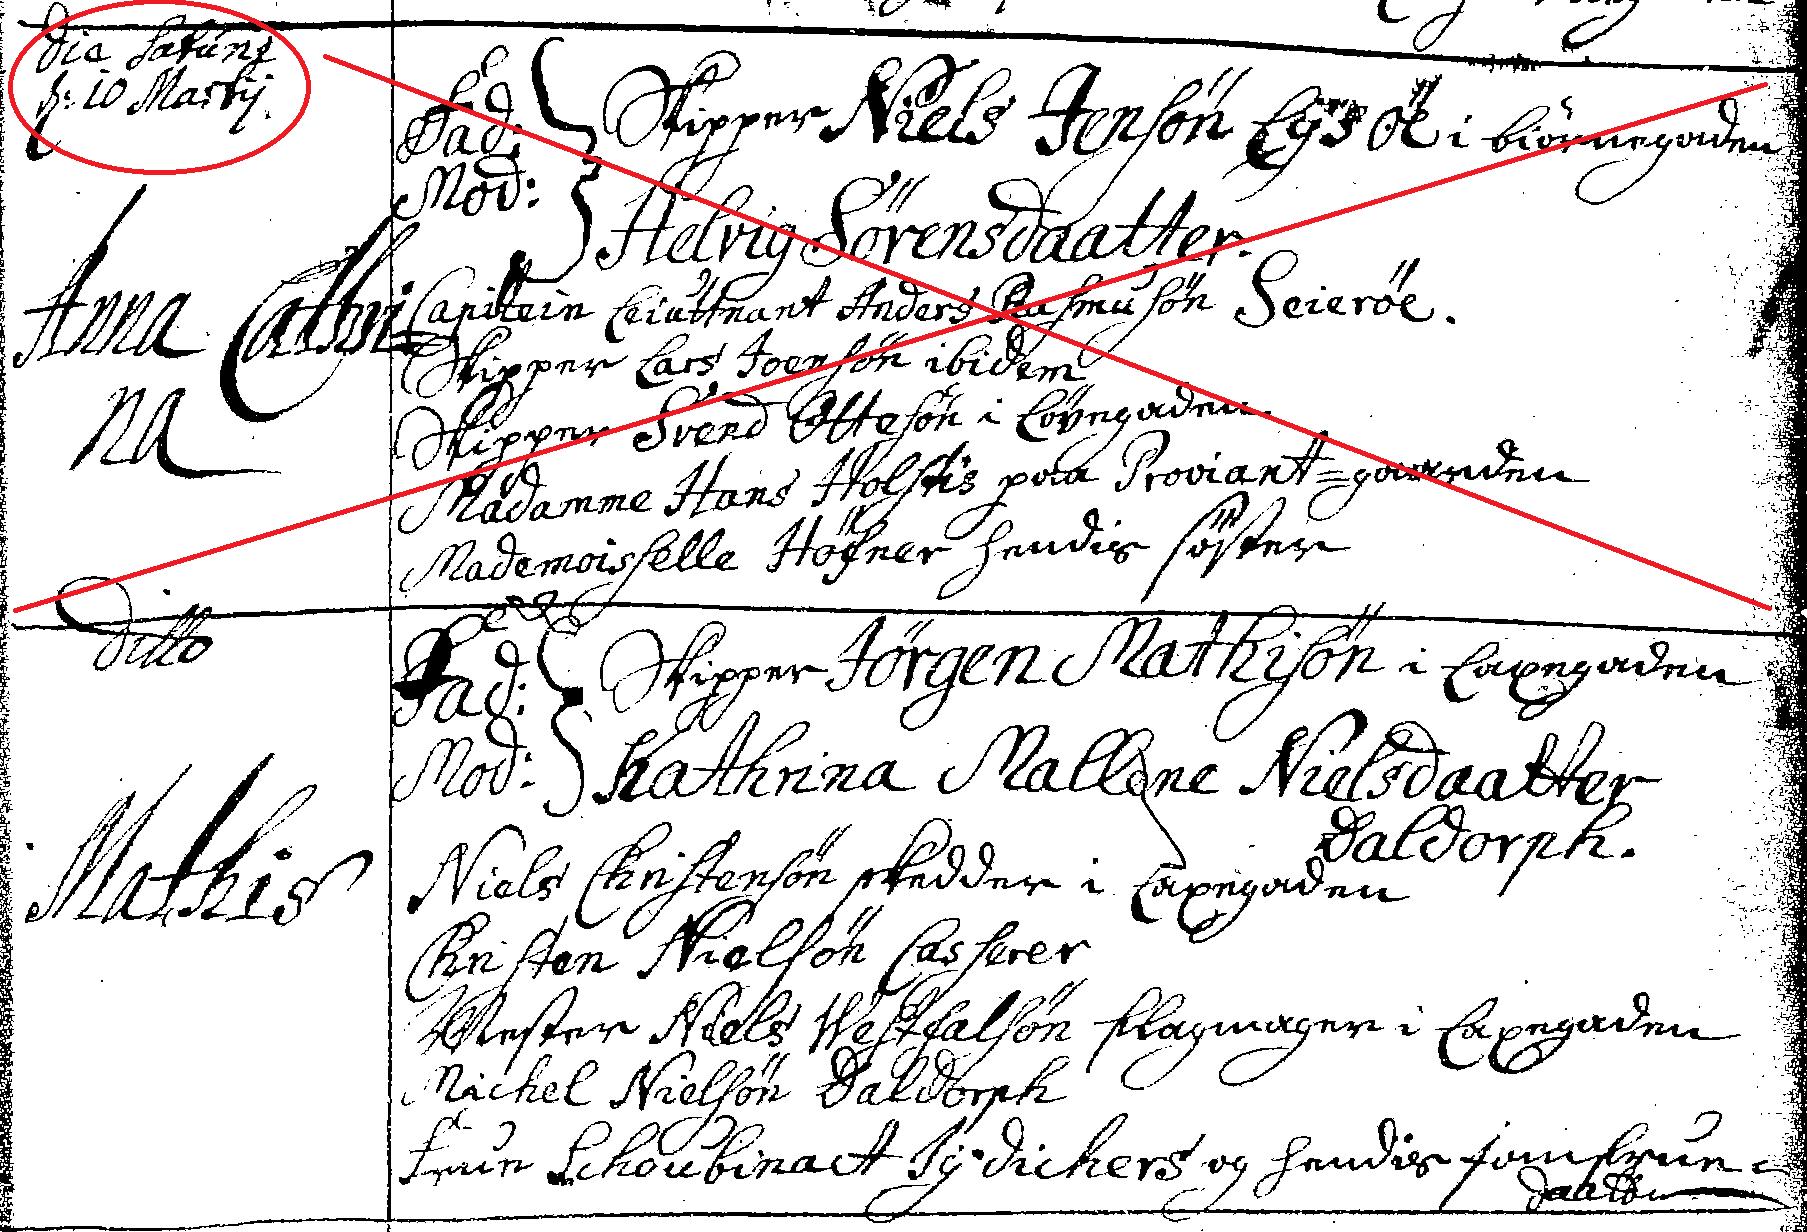 die Saturni
d: 10 Martij
Anna Cathri=
na
Fad: Skipper Niels Jensön Lys Öe i biörnegaden
Mod: Helvig Sörensdaatter.
Capitein Leiutnant Anders Rasmusön Seieröe.
Skipper Lars Joensön ibidem
Skipper Svend Ottesön i Løvegaden.
Madamme Hans Holstis paa Proviant=gaarden
Mademoisselle Höfner hendis söster
ditto
Mathis
Fad: Skipper Jörgen Mathisön i Laxegaden
Mod: Kathrina Mallene Nielsdaatter
Daldorph.
Niels Christensön skedder i Laxegaden
Christen Nielsön Casserer
Mester Niels Westfalsön flagmager i Laxegaden
Michel Nielsön Daldorph
Frue Schoubinact Sÿdickers og hendis jomfrue=
daatter